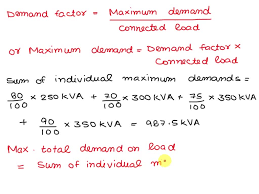 Demand factor = Maximum demand
connected load
or Maximum demand = Demand factor ×
Connected load
Sum of individual maximum demands =
80/100 × 250 kVA + 70/100 × 300 kVA + 75/100 × 350 kVA
+ 90/100 × 350 kVA = 987.5 kVA
Max. total demand on load
= Sum of individual m